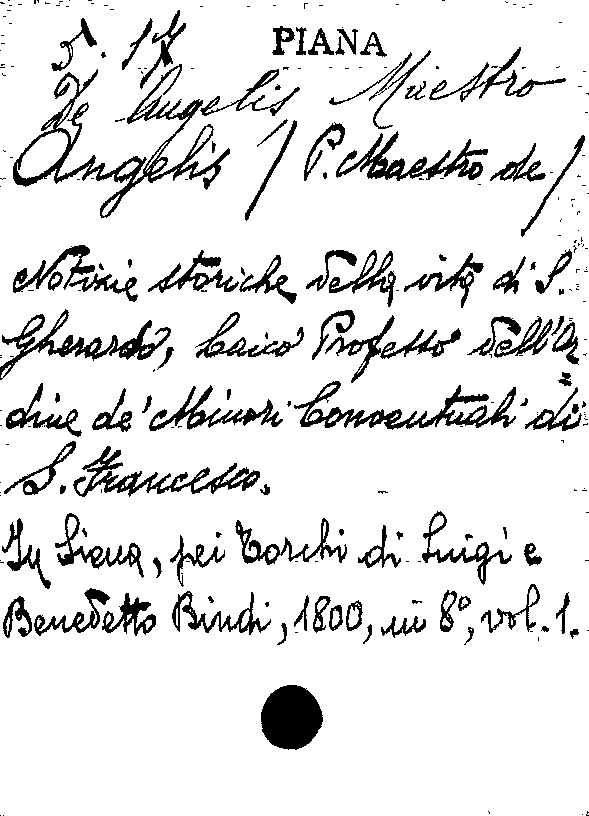 5. 17 PIANA
De Angelis Maestro
Angelis / P. Maestro de /
Notizie storiche della vita di S.
Gherardo, Laico Professo dell'Or=
dine de' Minori Conventuali di
S. Francesco.
In Siena, pei Torchi di Luigi e
Benedetto Bindi, 1800, in 8º, vol. 1.